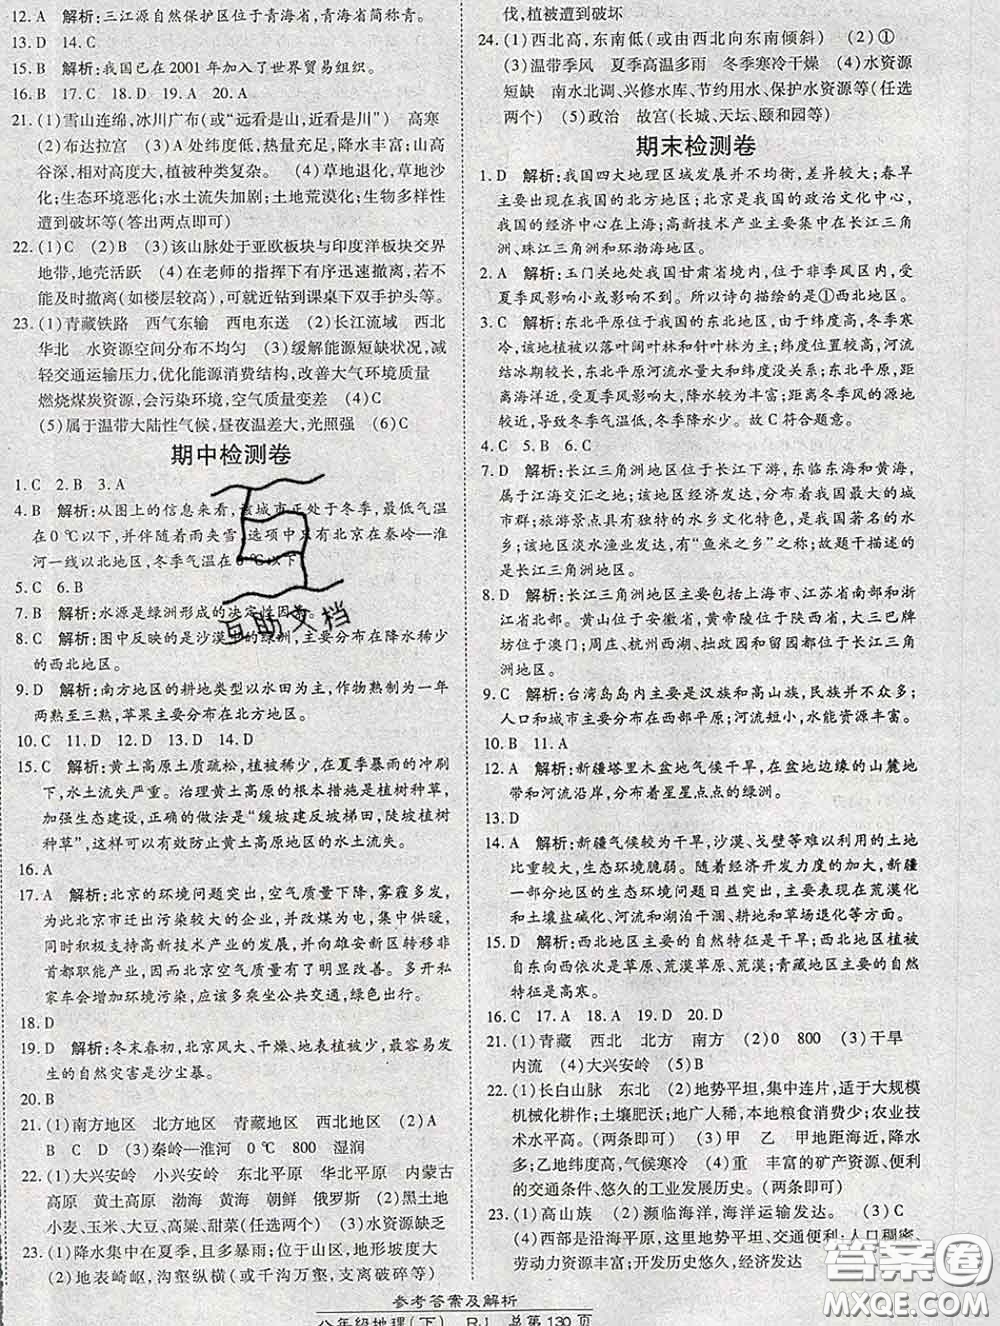 12. A　解析:三江源自然保护区位于青海省,青海省简称青。
13. D　14. C
15. B　解析:我国已在2001年加入了世界贸易组织。
16. B　17. C　18. D　19. A　20. A
21. (1)雪山连绵,冰川广布(或“远看是山,近看是川”)　高寒
(2)布达拉宫　(3)A处纬度低,热量高,降水丰富;山高
谷深,相对高度大,植被种类复杂。　(4)草场退化,草地沙
化;生态环境恶化;水土流失加剧;土地荒漠化;生物多样性
遭到破坏等(答出两点即可)
22. (1)C　(2)B　(3)该山脉处于亚欧板块与印度洋板块交界
地带,地壳活跃　(4)在老师的指挥下有序迅速撤离;若不
能及时撤离(如楼层较高)时,可就近钻到课桌下双手护头等。
23. (1)青藏铁路　西气东输　西电东送　(2)长江流域　西北
华北　水资源空间分布不均匀　(3)缓解能源短缺状况,减
轻交通运输压力,优化能源消费结构,改善大气环境质量
燃烧煤炭资源,会污染环境,空气质量变差　(4)C
(5)属于温带大陆性气候,昼夜温差大,光照强　(6)C
期中检测卷
1. C　2. B　3. A
4. B　解析:从图上的信息来看,该城市正处于冬季,最低气温
在0 ℃以下,并伴随着雨夹雪,选项中只有北京在秦岭—淮
河一线以北地区,冬季气温在0 ℃以下
5. C　6. B
7. B　解析:水源是绿洲形成的决定性因素。
8. C　解析:图中反映的是沙漠中的绿洲,主要分布在降水稀少
的西北地区。
9. D　解析:南方地区的耕地类型以水田为主,作物熟制为一年
两熟至三熟,苹果主要分布在北方地区。
10. C　11. D　12. D　13. D　14. D
15. C　解析:黄土高原土质疏松,植被稀少,在夏季暴雨的冲刷
下,水土流失严重。治理黄土高原的根本措施是植树种草,
加强生态建设,正确的做法是“缓坡建反坡梯田,陡坡植树
种草”,这样可以有效防止黄土高原地区的水土流失。
16. A
17. A　解析:北京的环境问题突出,空气质量下降,雾霾多发,
为此北京市迁出污染较大的企业,并改煤为电,集中供暖,
同时积极支持高新技术产业的发展,并向雄安新区转移非
首都职能产业,因而北京空气质量有了明显改善。多开私
家车会增加环境污染,应该多乘公共交通,绿色出行。
18. D
19. D　解析:冬末春初,北京风大、干燥、地表植被少,最容易发
生的自然灾害是沙尘暴。
20. B
21. (1)南方地区　北方地区　青藏地区　西北地区　(2)A
B　D　(3)秦岭—淮河　0 ℃　800　湿润
22. (1)大兴安岭　小兴安岭　东北平原　华北平原　内蒙古
高原　黄土高原　渤海　黄海　朝鲜　俄罗斯　(2)黑土地
小麦、玉米、大豆、高粱、甜菜(任选两个)　(3)水资源缺乏
23. (1)降水集中在夏季,且多暴雨;位于山区,地形坡度大
(2)地表崎岖,沟壑纵横(或千沟万壑,支离破碎等)
伐,植被遭到破坏
24. (1)西北高,东南低(或由西北向东南倾斜)　(2)①
(3)温带季风　夏季高温多雨　冬季寒冷干燥　(4)水资源
短缺　南水北调、兴修水库、节约用水、保护水资源等(任选
两个)　(5)政治　故宫(长城、天坛、颐和园等)
期末检测卷
1. D　解析:我国四大地理区域发展并不均衡,差异较大;春旱
主要出现在我国的北方地区;北京是我国的政治文化中心,
我国的经济中心在上海;高新技术产业主要集中在长江三角
洲、珠江三角洲和环渤海地区。
2. A　解析:玉门关地处我国甘肃省境内,位于非季风区内,受
夏季风影响小或影响不到。所以诗句描绘的是①西北地区。
3. C　解析:东北平原位于我国的东北地区,由于纬度高,冬季寒
冷,该地植被以落叶阔叶林和针叶林为主;纬度位置较高,河流
结冰期较长,东北平原河流水量与纬度没关系;东北平原,距
离海洋近,受夏季风影响多,降水较为丰富;距离冬季风源地
较近,导致冬季千里冰封、万里雪飘。故C符合题意。
4. C　5. B　6. C
7. D　解析:长江三角洲地区位于长江下游,东临东海和黄海,
属于江海交汇之地;该地区经济发达,为我国最大的城市
群;旅游景点具有独特的水乡文化特色,是我国著名的水
乡;该地区淡水渔业发达,有“鱼米之乡”之称;故题干描述的
是长江三角洲地区。
8. D　解析:长江三角洲地区主要包括上海市、江苏省南部和浙
江省北部。黄山位于安徽省,黄帝陵位于陕西省,大三巴牌
坊位于澳门;周庄、杭州西湖、拙政园和留园都位于长江三角
洲地区。
9. C　解析:台湾岛岛内主要是汉族和高山族,民族并不众多;
人口和城市主要分布在西部平原;河流短小,水能资源丰富。
10. B　11. A
12. A　解析:新疆塔里木盆地气候干旱,在盆地边缘的山麓地
带和河流沿岸,分布着星星点点的绿洲。
13. D
14. A　解析:新疆气候较为干旱,沙漠、戈壁等难以利用的土地
比重较大,生态环境脆弱。随着经济开发力度的加大,新疆
一部分地区的生态环境问题日益突出,主要表现在荒漠化
和土壤盐碱化、河流和湖泊干涸、耕地和草场退化等方面。
15. D　解析:西北地区主要的自然特征是干旱;西北地区植被
自东向西依次是草原、荒漠草原、荒漠;青藏地区主要的自然
特征是高寒。
16. C　17. A　18. A　19. D　20. D
21. (1)青藏　西北　北方　南方　(2)0　800　(3)干旱
内流　(4)大兴安岭　(5)B
22. (1)长白山脉　东北　(2)地势平坦,集中连片,适于大规模
机械化耕作;土壤肥沃;地广人稀,本地粮食消费少;农业技
术水平高。(两条即可)　(3)甲　乙　甲地临海近,降水较
多;乙地纬度较高,气候寒冷　(4)重　丰富的矿产资源、便利
的交通条件、悠久的工业发展历史。(两条即可)
23. (1)高山族　(2)濒临海洋,海洋运输发达。　(3)C
(4)西部是沿海平原,这里地势平坦、交通便利;人口稠密,
劳动力资源丰富;开发历史悠久,经济发达
参考答案及解析
八年级地理(下)　RJ　总第130页
互助文档
答案圈
MXQE.COM